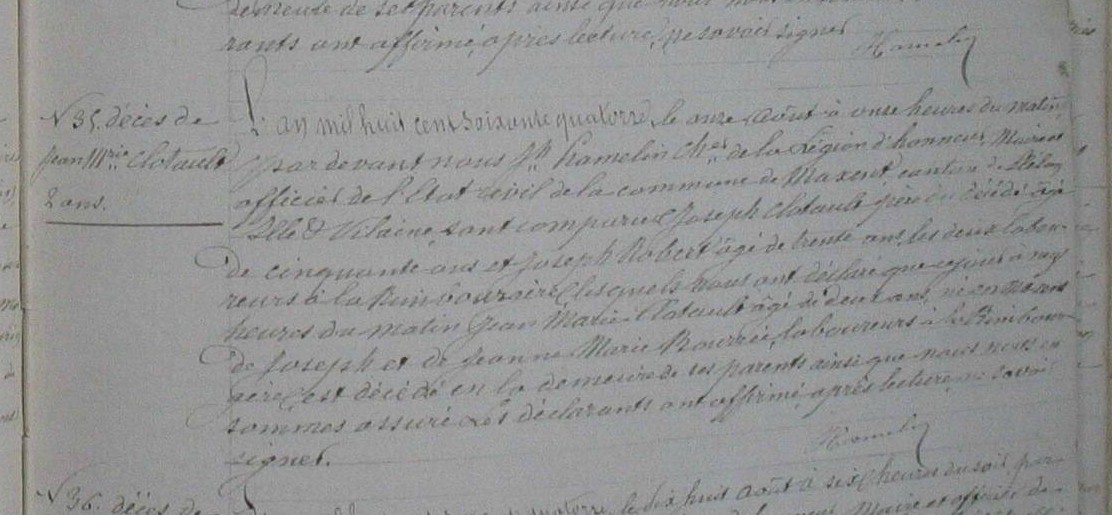 demeure de ses parents ainsi que nous
rants ont affirmé, après lecture, ne savoir signer
Hamelin
N 35. décès de
Jean Mrie Clotault
2 ans.
L'an mil huit cent soixante quatorze, le onze août à onze heures du matin
par devant nous Jh hamelin Cher de la Légion d'honneur, Maire et
officier de l'Etat civil de la commune de Maxent canton de Plélan
Ille & Vilaine, sont comparus Joseph Clotault père du décédé âgé
de cinquante ans et Joseph Robert âgé de trente ans, les deux labou-
reurs à la Rimbourgère, lesquels nous ont déclaré que ce jour à
heures du matin Jean Marie Clotault âgé de deux ans, né en Maxent
de Joseph et de Jeanne Marie Bourrée, laboureurs à la Rimbour-
gère, est décédé en la demeure de ses parents ainsi que nous nous en
sommes assuré. Les déclarants ont affirmé, après lecture, ne savoir
signer.
Hamelin
N 36. décès de
quatorze, le dix huit août à six heures du soir par
Maire et officier de